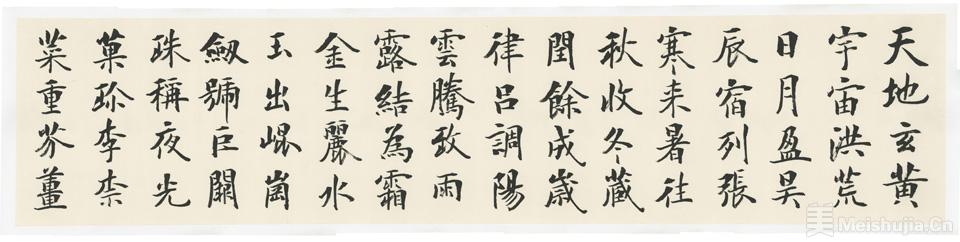 天地玄黄
宇宙洪荒
日月盈昃
辰宿列張
寒来暑往
秋收冬藏
閏餘成歲
律吕調陽
雲騰致雨
露結為霜
金生麗水
玉出崐崗
劔號巨闕
珠稱夜光
菓珍李柰
菜重芥薑
美 Meishujia.Cn